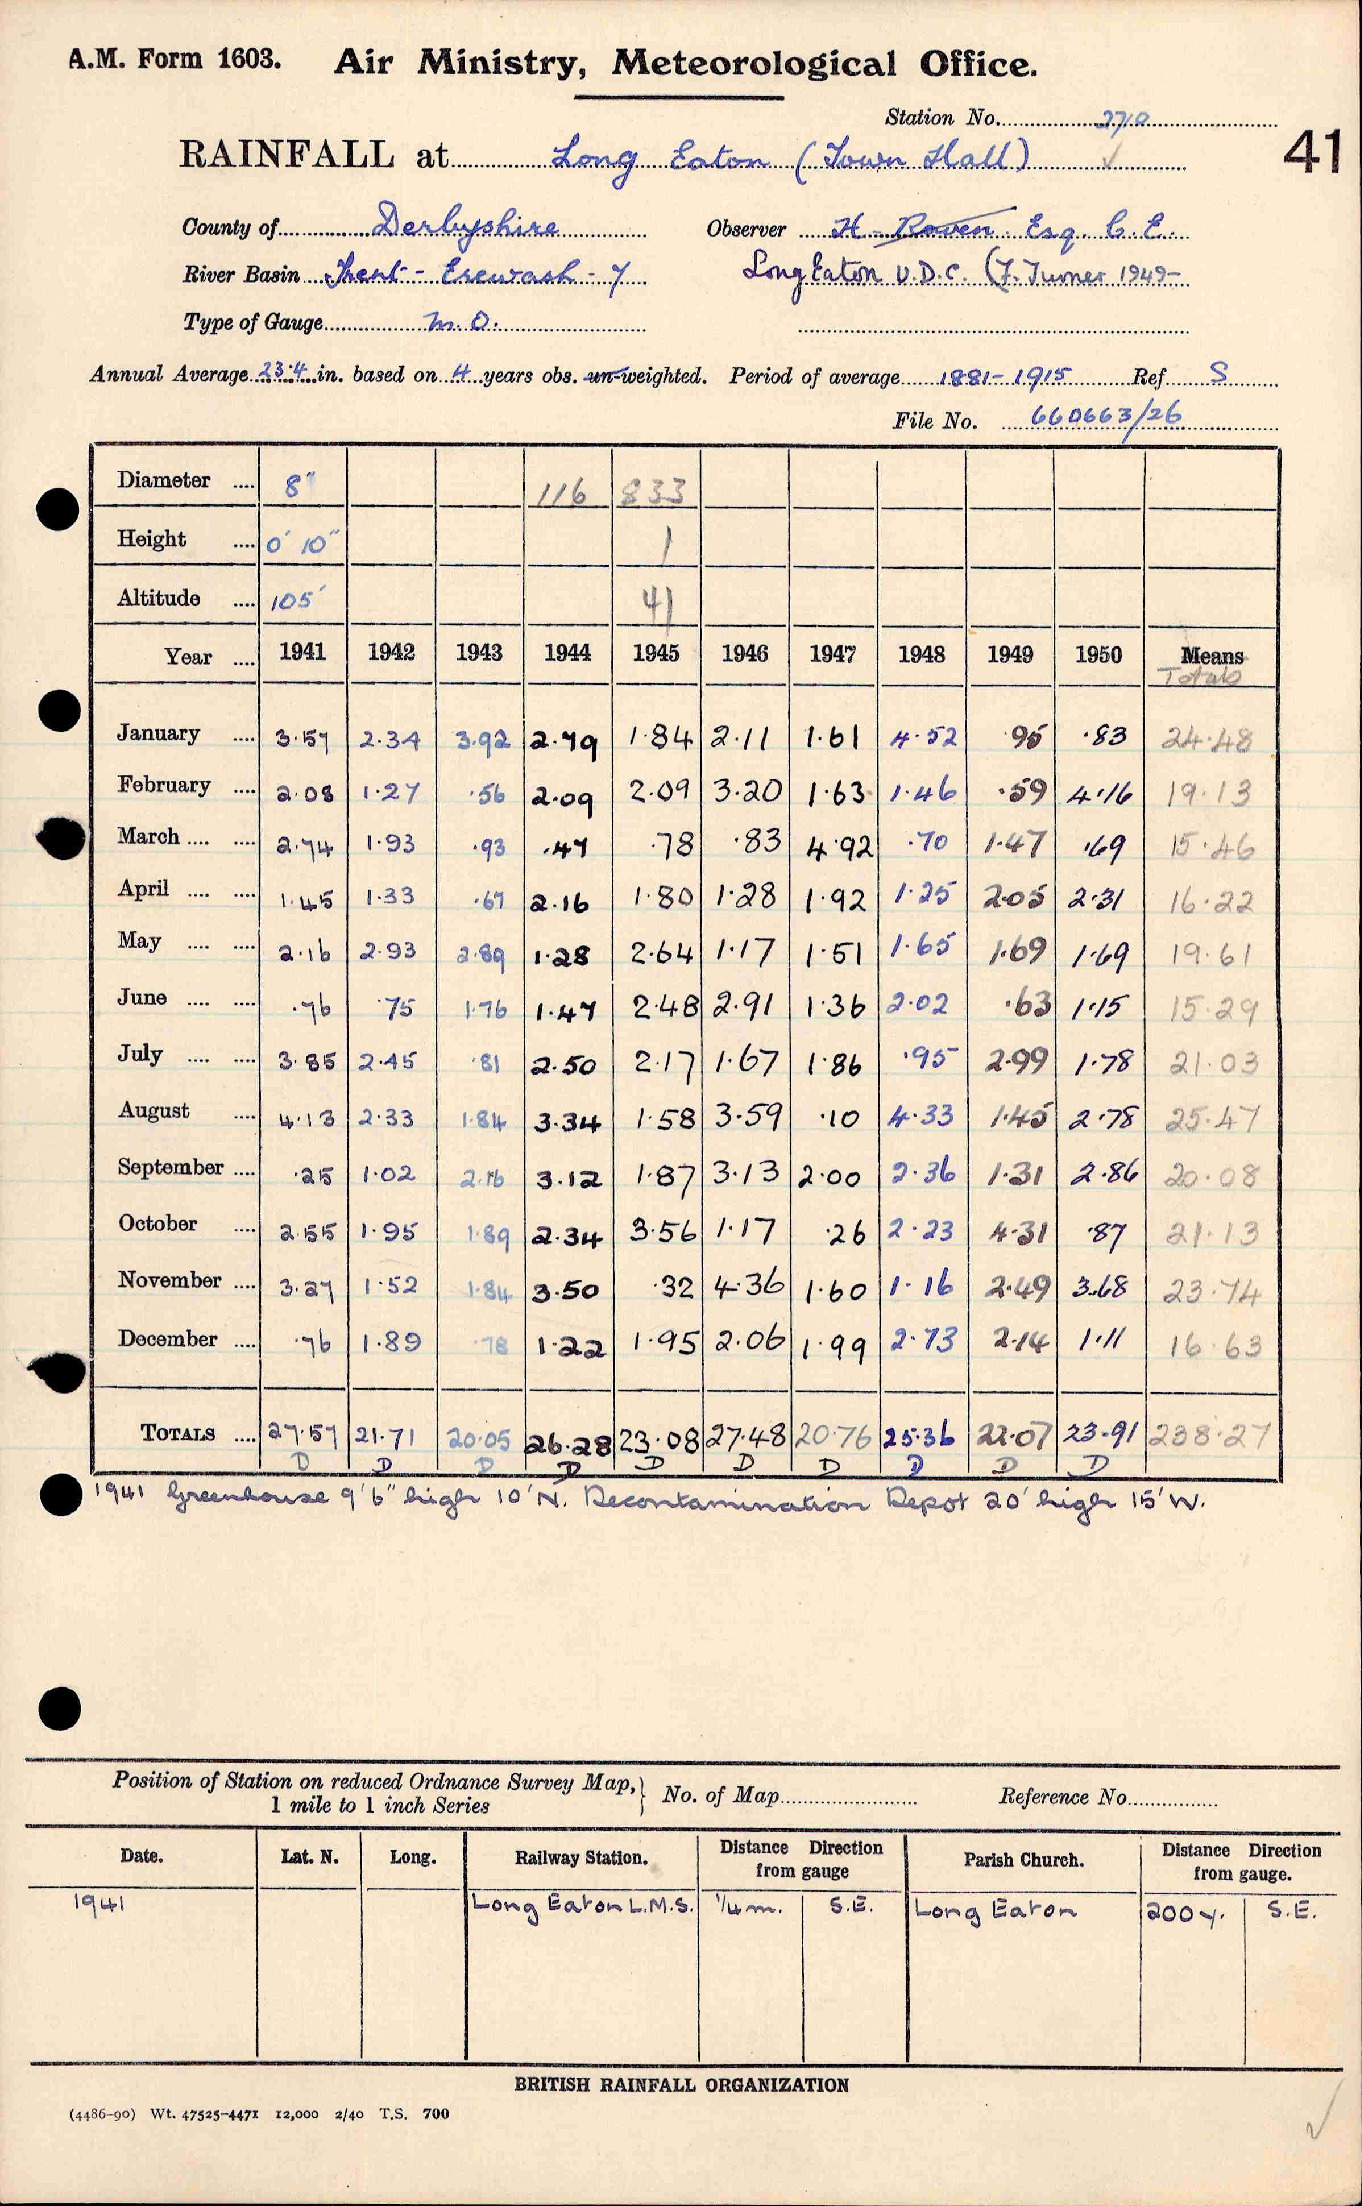 A.M. Form 1603. Air Ministry, Meteorological Office.
Station No. 2710
RAINFALL at Long Eaton (Town Hall) ✓ 41
County of Derbyshire Observer H. Bowen Esq. C.E.
River Basin Trent - Erewash - 7 Long Eaton U.D.C. (F. Turner 1949-
Type of Gauge M.O.
Annual Average 23.4 in. based on 4 years obs. un-weighted. Period of average 1881-1915 Ref S
File No. 660663/26
Diameter .... 8" 116 833
Height .... 0' 10" 1
Altitude .... 105' 41
Year .... 1941 1942 1943 1944 1945 1946 1947 1948 1949 1950 Means
Totals
January .... 3.57 2.34 3.92 2.79 1.84 2.11 1.61 4.52 .95 .83 24.48
February .... 2.08 1.27 .56 2.09 2.09 3.20 1.63 1.46 .59 4.16 19.13
March .... .... 2.74 1.93 .93 .47 .78 .83 4.92 .70 1.47 .69 15.46
April .... .... 1.45 1.33 .67 2.16 1.80 1.28 1.92 1.25 2.05 2.31 16.22
May .... .... 2.16 2.93 2.89 1.28 2.64 1.17 1.51 1.65 1.69 1.69 19.61
June .... .... .76 .75 1.76 1.47 2.48 2.91 1.36 2.02 .63 1.15 15.29
July .... .... 3.85 2.45 .81 2.50 2.17 1.67 1.86 .95 2.99 1.78 21.03
August .... 4.13 2.33 1.84 3.34 1.58 3.59 .10 4.33 1.45 2.78 25.47
September .... .25 1.02 2.16 3.12 1.87 3.13 2.00 2.36 1.31 2.86 20.08
October .... 2.55 1.95 1.89 2.34 3.56 1.17 .26 2.23 4.31 .87 21.13
November .... 3.27 1.52 1.84 3.50 .32 4.36 1.60 1.16 2.49 3.68 23.74
December .... .76 1.89 .78 1.22 1.95 2.06 1.99 2.73 2.14 1.11 16.63
TOTALS .... 27.57 21.71 20.05 26.28 23.08 27.48 20.76 25.36 22.07 23.91 238.27
D D D D D D D D D D
1941 Greenhouse 9'6" high 10'N. Decontamination Depot 20' high 15'W.
Position of Station on reduced Ordnance Survey Map,} No. of Map Reference No.
1 mile to 1 inch Series
Date. Lat. N. Long. Railway Station. Distance Direction from gauge Parish Church. Distance Direction from gauge.
1941 Long Eaton L.M.S. 1/4 m. S.E. Long Eaton 200 y. S.E.
BRITISH RAINFALL ORGANIZATION
(4486-90) Wt. 47525-4471 12,000 2/40 T.S. 700
✓